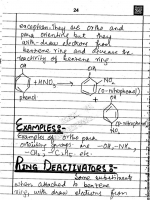 24
exception. They are ortho and
para orienting but they
with-draw electrons from
benzene ring and decrease the
reactivity of benzene ring.
OH
OH
+ HNO3 →
NO2
(o-nitrophenol)
phenol
+
OH
NO2
(p-nitrophenol)
EXAMPLES:-
Examples of ortho para
orienting groups are -OH, -NH2,
-CH3, -C2H5 etc.
RING DEACTIVATORS:-
Some substituents
when attached to benzene
ring, with draw electrons from